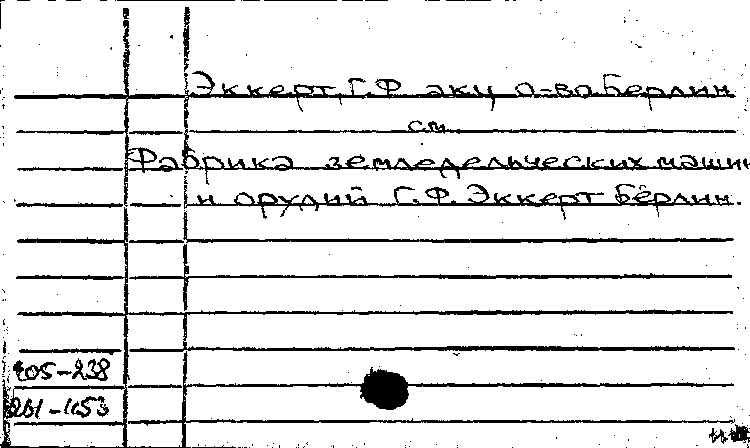 Эккерт, Г.Ф. акц о-во. Берлин
см.
Фабрика земледельческих машин
и орудий Г.Ф. Эккерт Берлин.
105-238